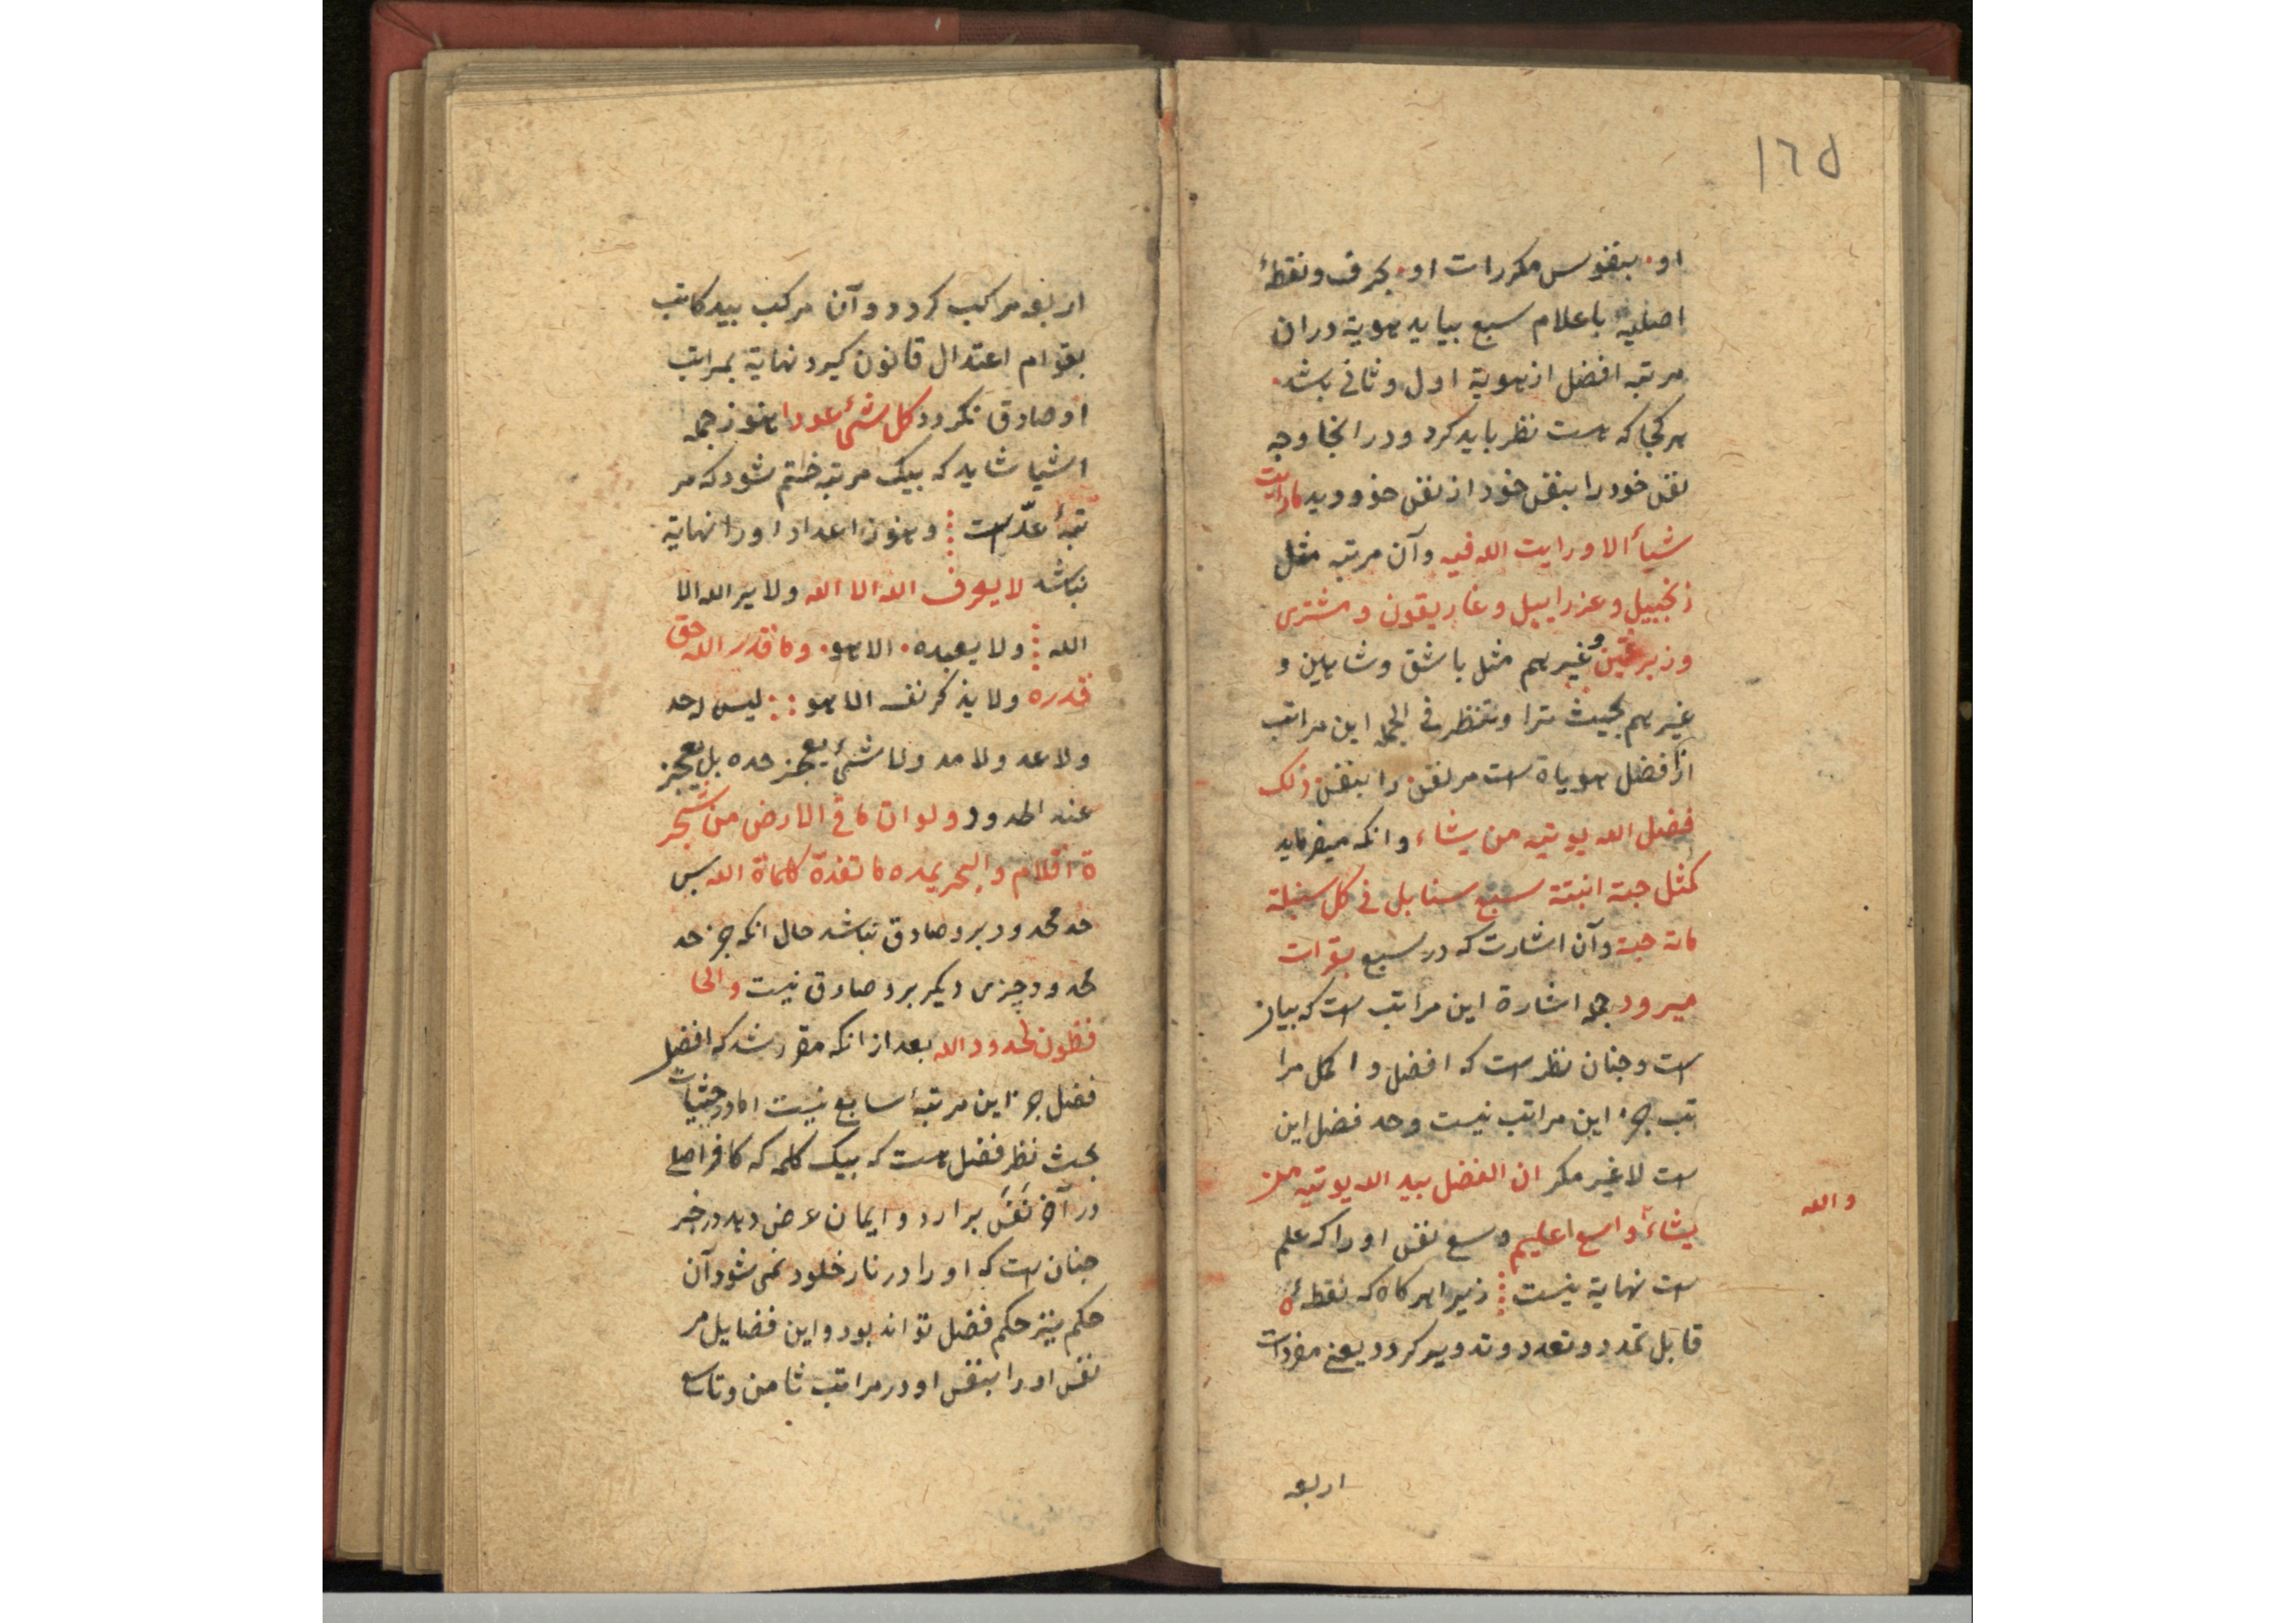 ١٦٥
او۰ بنفوس مکررات او۰ بحرف و نقطهٔ
اصلیهٔ باعلام سبع بیاید هویة دران
مرتبه افضل از هویة اول و ثانی باشد۰
هر کجا که هست نظر باید کرد و در انجا وجه
نفس خود را بنفس خود از نفس خود دید ما رایت
شیأ الا و رایت الله فیه و آن مرتبه مثل
زنجبیل و عزراییل و غاریقون و مشتری
و زبر و غیرهم مثل باشق و شاهین و
غیرهم بحیث ترا و تنظر فی الجمله این مراتب
از افضل هویاة است مر نفس را بنفس ذلک
فضل الله یوتیه من یشاء و انکه میفرماید
کمثل حبة انبتة سبع سنابل فی کل سنبلة
مائة حبة و آن اشارت که در سبع بقرات
میرود جمله اشارة این مراتب است که بیان
است و چنان نظر است که افضل و اکمل مرا
تب جز این مراتب نیست و حد فضل این
است لا غیر مکر ان الفضل بید الله یوتیه من
والله
یشاء واسع اعلیم وسع نفس او را که علم
است نهایة نیست ⁞ زیرا هر کاه که نقطهٔ
قابل تمدد و تعدد و تدویر کردد یعنی مفردات
اربعه
اربعه مراکب کردد و آن مرکب بید کاتب
بقوام اعتدال قانون کیرد نهایة بمراتب
او صادق نکردد کل شئ عودا هنوز جمله
اشیا شاید که بیک مرتبه ختم شود که مر
تبهٔ عدّ است ⁞ و هنوز اعداد او را نهایة
نباشد لا یعرف الله الا الله ولا یر الله الا
الله ⁞ ولا یعبده۰ الا هو۰ و ما قدر الله حق
قدره ولا یذکر نفسه الا هو : : لیس له حد
ولا عد ولا مد ولا شئ یعجز حده بل یعجز
عند الحدود ولو ان ما فی الارض من شجر
ة اقلام والبحر یمده ما نفدة کلماة الله پس
حد محدود برو صادق نباشد حال انکه جز حد
محدود چیزی دیکر برو صادق نیست والحا
فظون لحدود الله بعد از انکه مقرر شد که افضل
فضل جز این مرتبهٔ سابع نیست اما در حیثیات
بحث نظر فضل هست که بیک کلمه که کافر اصلی
در آخر نَفَس برارد و ایمان عرض دهد در خبر
چنان است که او را در نار خلود نمی شود آن
حکم نیز حکم فضل تواند بود و این فضایل مر
نفس او را بنفس او در مراتب ثامن و تاسع